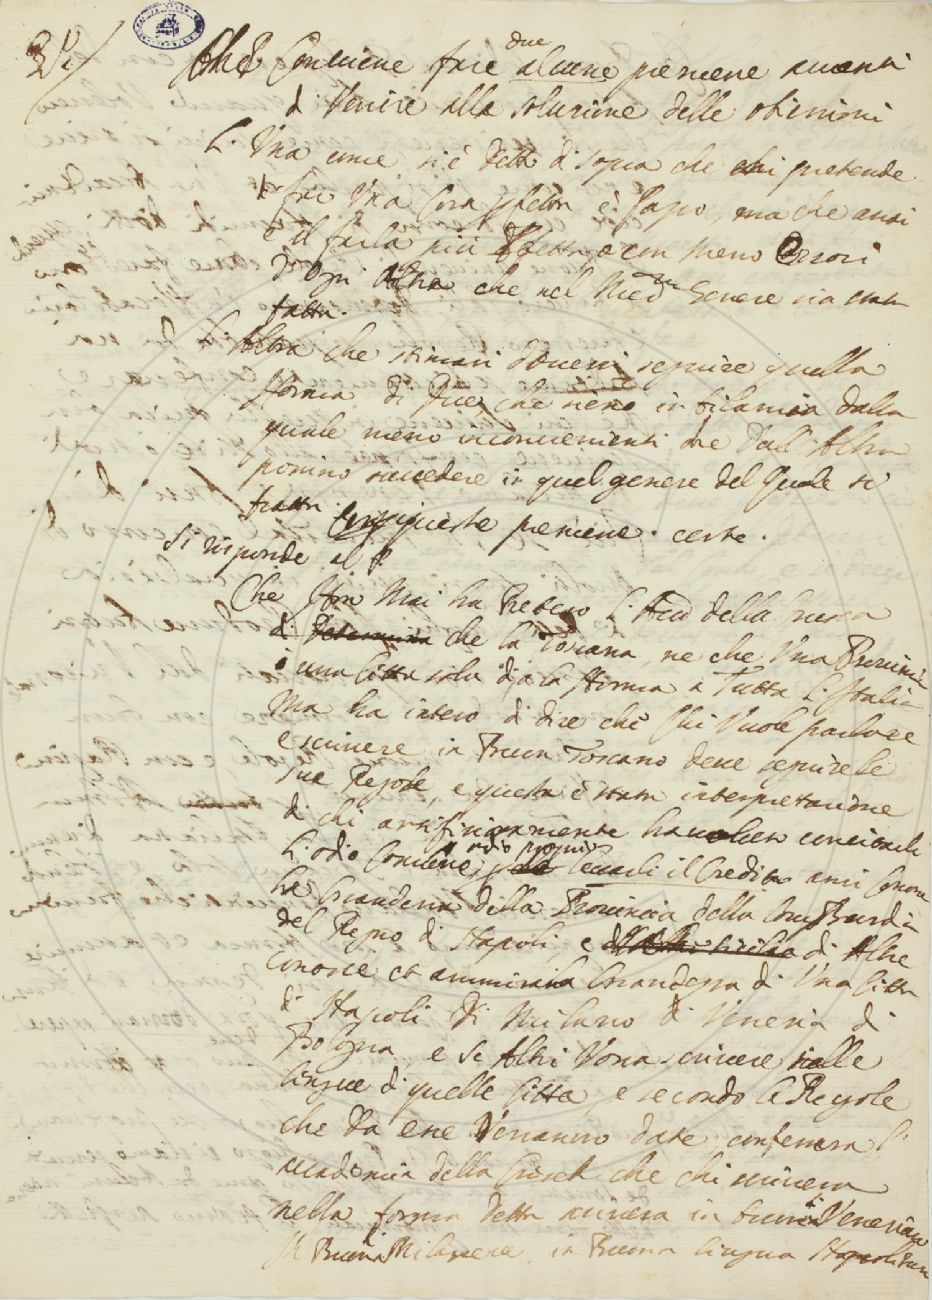 Conviene fare due alcune premesse avanti
di Venire alla soluzione delle obiezioni
L. Una come si è detto di sopra che chi pretende
fare Una Cosa è Pazzo, ma che anzi
è il farla più e con meno Errori
d'ogni Altra che nel Med.mo Genere sia stata
fatta.
L'Altra che stimasi doversi seguire quella
Norma di Due che sieno in bilancia dalla
quale meno inconvenienti che dall'Altra
possino succedere in quel genere del Quale si
tratta. queste premesse. certe.
Si risponde al P.
Che Non Mai ha Preteso l'Acc.a della Crusca
di che la Toscana, ne che Una Provincia
o una Citta sola dia la Norma a Tutta l'Italia
Ma ha inteso di dire che Chi Vuole parlare
e scrivere in Buon Toscano deve seguire le
sue Regole, e questa è stata interpretazione
di chi artifiziosamente ha voluto conciliarli
l'odio Comune, levarli il Credito anzi Conosce
la Grandezza della Provincia della Lombardia
del Regno di Napoli, e di Altre
conosce et ammira la Grandezza di Una Citta
di Napoli di Milano di Venezia di
Bologna, e se Altri Vorra scrivere nelle
lingue di quelle Citta, e secondo le Regole
che da esse Verranno date, confessera l'
accademia della Crusca che chi scrivera
nella forma detta scrivera in buon Veneziano
in Buon Milanese, in Buona lingua Napolitana